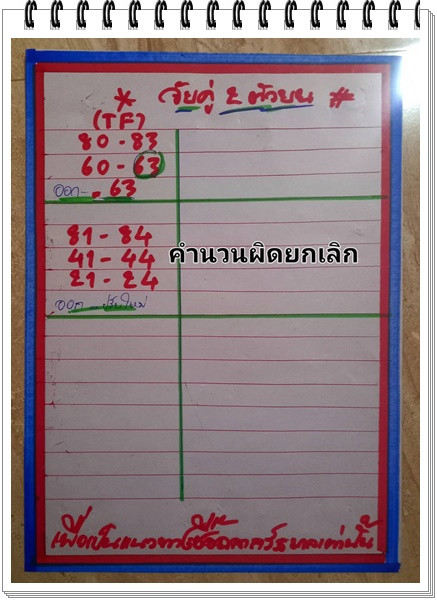 * จับคู่ 2 ตัวบน #
(TF)
80 - 83
60 - 63
ออก - . 63
81 - 84
41 - 44
21 - 24
ออก - ปรับใหม่
คำนวนผิดยกเลิก
เพื่อเป็นแนวทางซื้อสลากรัฐบาลเท่านั้น